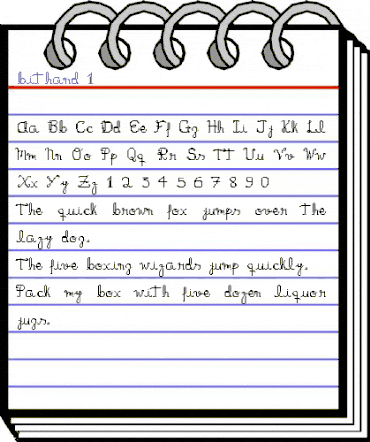 bithand 1
Aa Bb Cc Dd Ee Ff Gg Hh Ii Jj Kk Ll
Mm Nn Oo Pp Qq Rr Ss TT Uu Vv Ww
Xx Yy Zz 1 2 3 4 5 6 7 8 9 0
The quick brown fox jumps over the
lazy dog.
The five boxing wizards jump quickly.
Pack my box with five dozen liquor
jugs.